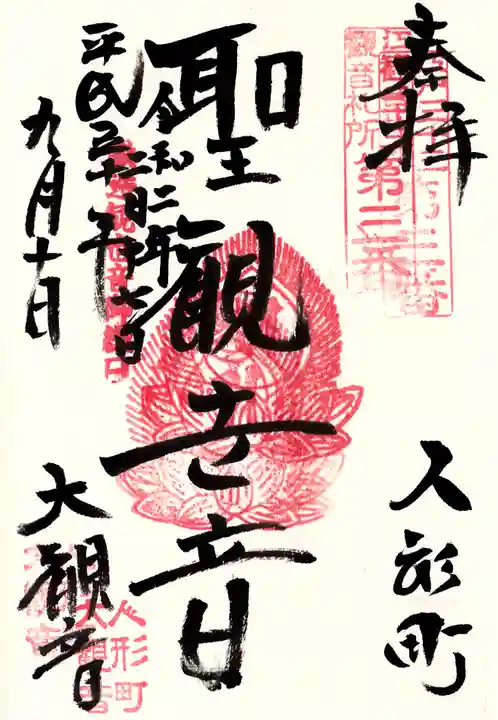 奉拝
人形町
聖観世音
令和二年
二月十七日
平成三十年
九月十日
大観音
観音札所第三番
人形町
大観音